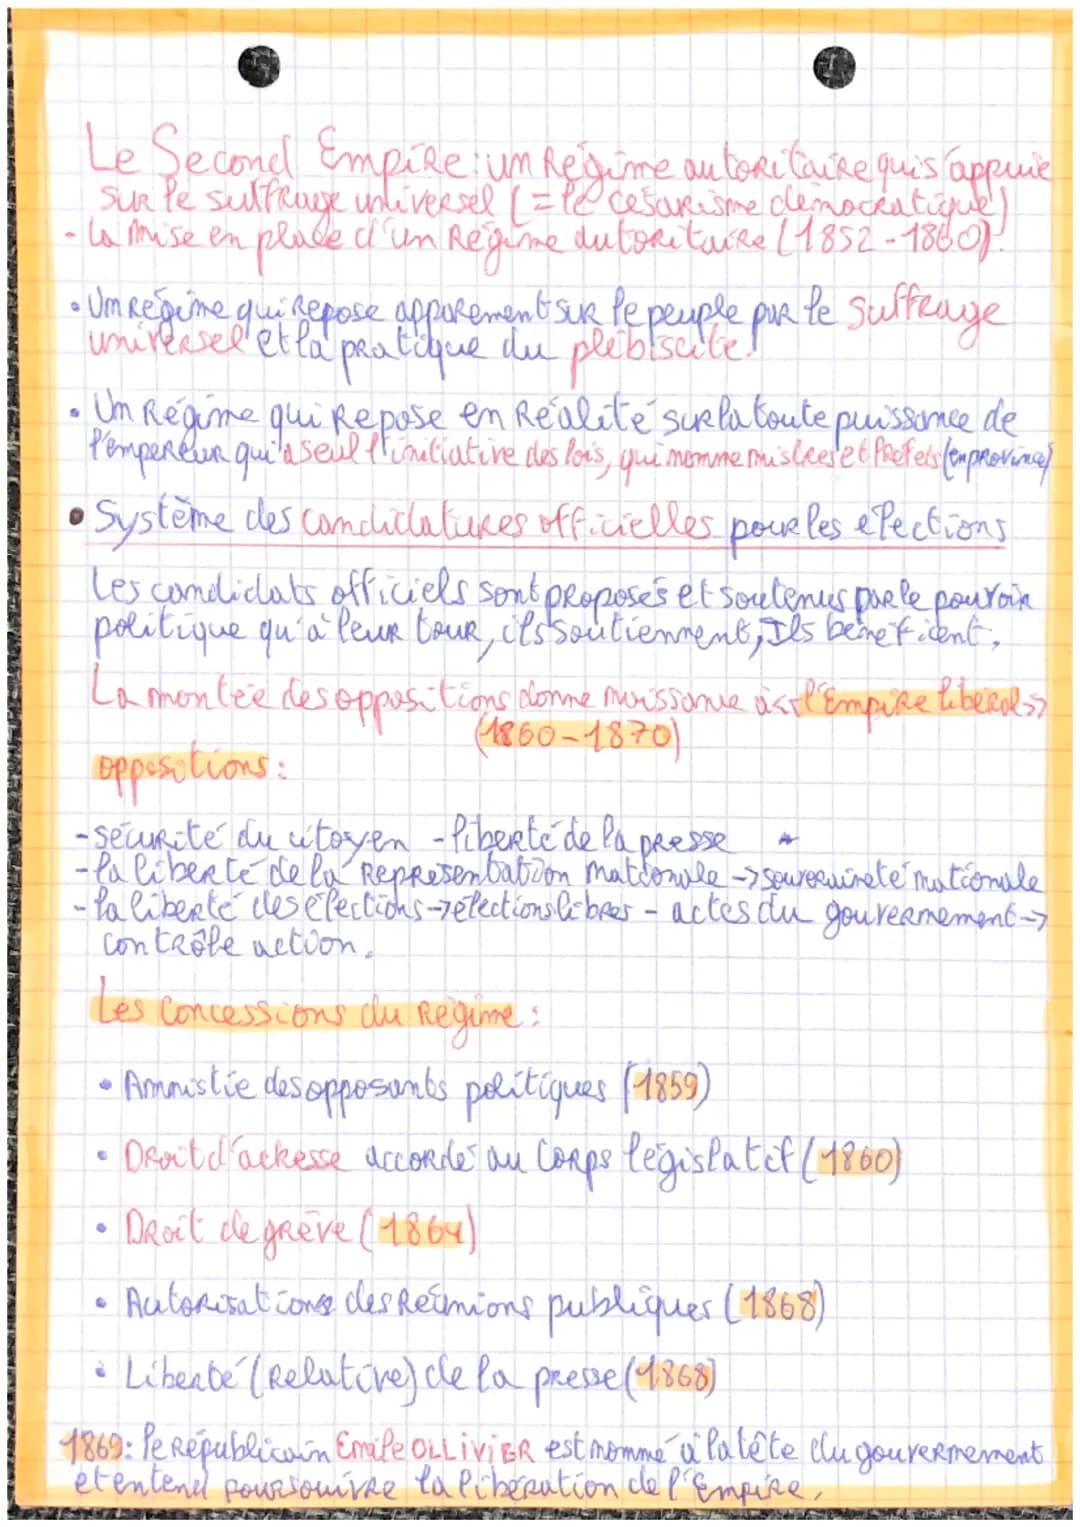 Le Second Empire : un Régime autoritaire qui s'appuie
sur le suffrage universel (= le césarisme démocratique)
- La mise en place d'un Régime autoritaire (1852-1860).
• Un régime qui repose apparement sur le peuple par le suffrage
universel et la pratique du plébiscite.
• Un Régime qui Repose en Réalité sur la toute puissance de
l'empereur qui a seul l'initiative des lois, qui nomme mistres et Préfets (en province)
• Système des candidatures officielles pour les élections
Les candidats officiels sont proposés et soutenus par le pouvoir
politique qu'à leur tour, ils soutiennent, Ils bénéficient.
La montée des oppositions donne naissance à << l'Empire libéral >>
(1860-1870)
oppositions :
- sécurité du citoyen - liberté de la presse *
- la liberté de la Représentation nationale -> souveraineté nationale
- la liberté des élections -> élections libres - actes du gouvernement ->
contrôle action.
Les Concessions du Régime :
• Amnistie des opposants politiques (1859)
• Droit d'adresse accordé au Corps législatif (1860)
• Droit de grève (1864)
• Autorisations des Réunions publiques (1868)
• Liberté (Relative) de la presse (1868)
1869: le Républicain Emile OLLIVIER est nommé à la tête du gouvernement
et entend poursuivre la libération de l'Empire.